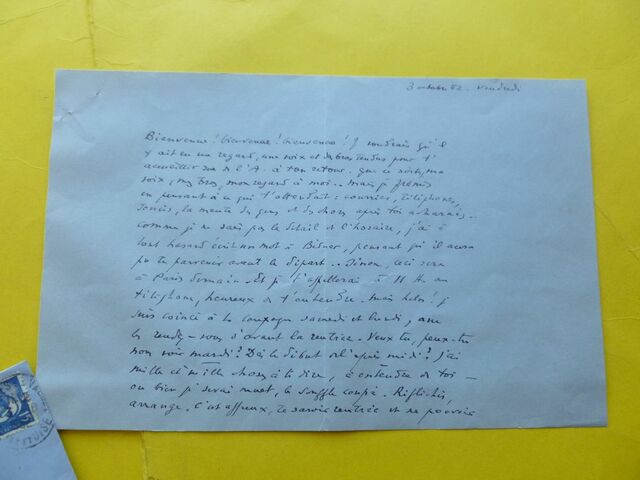 3 octobre 52. vendredi
Bienvenue! bienvenue! bienvenue! Je voudrais qu'il
y ait eu un regard, une voix et des bras tendus pour t'
accueillir de l'A. à ton retour, que ce soit ma
voix, mes bras, mon regard à moi.. mais je frémis
en pensant à ce qui t'attendait: courriers, téléphones,
soucis, la meute des gens et des choses après toi acharnés..
comme je ne sais pas le détail et l'horaire, j'ai à
tout hasard écrit un mot à, pensant qu'il aura
pu te parvenir avant le départ.. Sinon, ceci sera
à Paris demain. Et je t'appellerai à 11 H. au
téléphone, heureux de t'entendre. Mais hélas! je
suis coincé à la campagne samedi et lundi, avec
les rendez-vous d'avant la rentrée. Veux-tu, peux-tu
me voir mardi? Dès le début de l'après midi? J'ai
mille et mille choses à te dire, à entendre de toi —
ou bien je serai muet, le souffle coupé. Réfléchis,
arrange. C'est affreux, te savoir rentrée et ne pouvoir